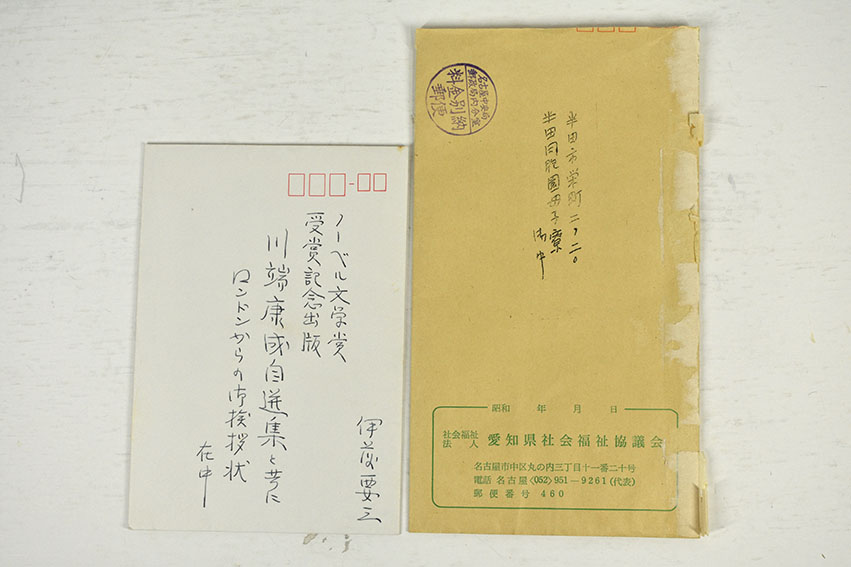 ノーベル文学賞
受賞記念出版
川端康成自選集と共に
ロンドンからの御挨拶状
在中
伊藤要三
名古屋中央局
郵政局内分室
料金別納
郵便
半田市栄町二ノ二〇
半田同胞園母子寮
御中
昭和 年 月 日
社会福祉法人 愛知県社会福祉協議会
名古屋市中区丸の内三丁目十一番二十号
電話 名古屋〈052〉951-9261(代表)
郵便番号 460